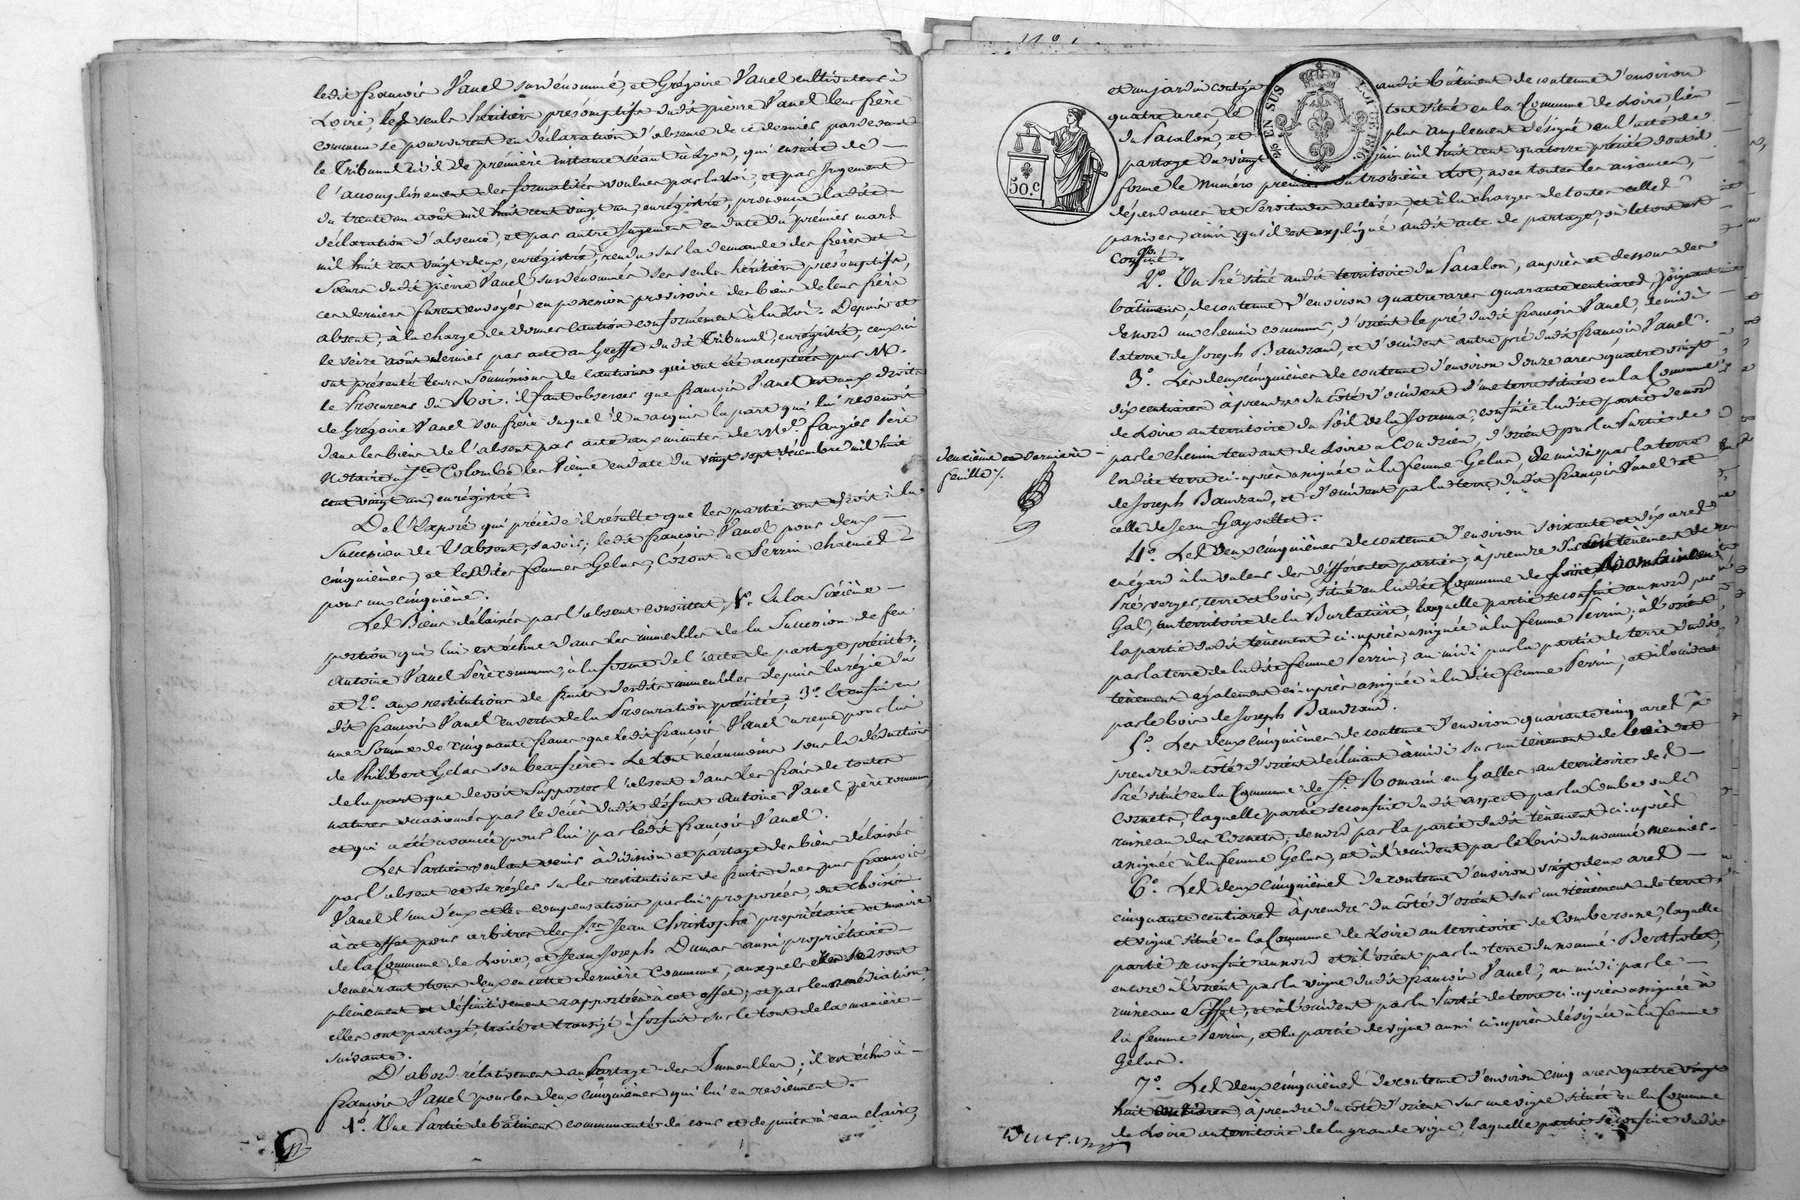 ledit françois Vanel susdénommé, et Grégoire Vanel cultivateur à
Loire, les seuls héritiers présomptifs dudit pierre Vanel leur frère
commun se pourvurent en déclaration d'absence de ce dernier, pardevant
le Tribunal Civil de première instance séant à Lyon, qui ensuite de —
l'accomplissement des formalités voulues par la loi, et par Jugement
du trente un août mil huit cent vingt un, enregistré, prononça ladite
déclaration d'absence, et par autre Jugement en date du premier mars
mil huit cent vingt deux, enregistré, rendu sur la demande des frères et
Sœurs dudit pierre Vanel susdénommés ses seuls héritiers présomptifs,
ces derniers furent envoyés en possession provisoire des biens de leur frère
absent, à la charge de donner caution conformément à la Loi. Depuis et
le seize août dernier par acte au Greffe dudit Tribunal, enregistré, ceux-ci
ont présenté leurs soumissions de cautions qui ont été acceptées par M.
le Procureur du Roi. il faut observer que françois Vanel est aux droits
de Grégoire Vanel son frère duquel il a acquis la part qui lui revenoit
dans les biens de l'absent par acte aux minutes de Me fangier Père
Notaire à Ste Colombe les Vienne en date du vingt sept décembre mil huit
cent vingt un, enregistré.
De l'Exposé qui précède il résulte que les parties ont droit à la
Succession de l'absent, savoir; ledit françois Vanel pour deux —
cinquièmes, et lesdites femmes Gelas, Cézont et Perrin chacune
pour un cinquième.
Les Biens délaissés par l'absent consistent, 1º. En la Sixième —
portion qui lui est échue dans les immeubles de la Succession de feu
Antoine Vanel Père commun, à la forme de l'acte de partage précité;
et 2º. aux restitutions de fruits desdits immeubles depuis la régie du
dit françois Vanel en vertu de la Procuration précitée, 3º. Et enfin en
une Somme de cinquante francs que ledit françois Vanel a reçue pour lui
de Philibert Gelas son beaufrère. Le tout néanmoins sous la déduction
de la part que devoit supporter l'absent dans les frais de toutes
natures occasionnés par le décès dudit défunt Antoine Vanel père commun,
et qui a été avancée pour lui par ledit françois Vanel.
Les Parties voulant venir à division et partage des biens délaissés
par l'absent et se régler sur les restitutions de fruits dues par françois
Vanel l'un d'eux et les compensations par lui proposées, ont choisis
à cet effet pour arbitres les Srs Jean Christophe propriétaire et maire
de la Commune de Loire, et Jean Joseph Dumas aussi propriétaire —
demeurant tous deux en cette dernière commune, auxquels elles se sont
pleinement et définitivement rapportées à cet effet; et par leur médiation,
elles ont partagé, traité et transigé à forfait sur le tout de la manière —
suivante.
D'abord rélativement au Partage des Immeubles; il est échu à —
françois Vanel pour les deux cinquièmes qui lui en reviennent.
1º. Une Partie de bâtiment communauté de cour et de puits à eau claire,
et un jardin contigu audit bâtiment de contenue d'environ
quatre ares le tout situé en la Commune de Loire, lieu
du Pacalon, et plus amplement désigné en l'acte de
partage du vingt juin mil huit cent quatorze précité dont il
forme le Numéro premier du troisième Lot, avec toutes les aisances, —
dépendances et Servitudes actives, et à la charge de toutes celles
passives, ainsi qu'il est expliqué audit acte de partage, où le tout est
confiné.
2º. Un Pré situé audit territoire du Pacalon, auprès et dessous des
bâtimens, de contenue d'environ quatre ares quarante centiares, joignant
de nord un chemin commun, d'orient le pré dudit françois Vanel, de midi
la terre de Joseph Baudrand, et d'occident autre pré dudit françois Vanel.
3º. Les deux cinquièmes de contenue d'environ douze ares quatre vingt
dix centiares à prendre du côté d'occident d'une terre située en la Commune
de Loire au territoire du confinée ladite partie de nord
par le chemin tendant de Loire à Condrieu, d'orient par la Partie de
ladite terre ci-après assignée à la femme Gelas, de midi par la terre
de Joseph Baudrand, et d'occident par la terre dudit françois Vanel et
celle de Jean Gayottet.
4º. Les deux cinquièmes de contenue d'environ soixante et dix ares
en égard à la valeur des différentes parties, à prendre sur un tènement de
Pré, verger, terre et bois, situé en ladite Commune de St Romain en
Gal, au territoire de la Burlatière, laquelle partie se confine au nord par
la partie dudit tènement ci-après assignée à la femme Perrin, à l'orient
par la terre de ladite femme Perrin, au midi par la partie de terre dudit
tènement également ci-après assignée à ladite femme Perrin; et à l'occident
par le bois de Joseph Baudrand.
5º. Les deux cinquièmes de contenue d'environ quarante cinq ares à
prendre du côté d'orient déclinant à midi sur un tènement de bois et
Pré situé en la Commune de St Romain en Galles, au territoire des —
Cornets, laquelle partie se confine dudit aspect par la Combe ou le
ruisseau des Cornets, de nord par la partie dudit tènement ci-après
assignée à la femme Gelas, et à l'occident par le bois du nommé Meunier. —
6º. Les deux cinquièmes de contenue d'environ vingt deux ares —
cinquante centiares à prendre du côté d'orient sur un tènement de terre
et vigne situé en la Commune de Loire au territoire de Comberonne, laquelle
partie se confine au nord et à l'orient par la terre du nommé Bertholet,
encore à l'orient par la vigne dudit françois Vanel; au midi par le —
ruisseau et à l'occident par la Partie de terre ci-après assignée à
la femme Perrin, et la partie de vigne aussi ci-après désignée à la femme
Gelas.
7º. Les deux cinquièmes de contenue d'environ cinq ares quatre vingt
huit centiares à prendre du côté d'orient sur une vigne située en la Commune
de Loire au territoire de la grande vigne, laquelle partie se confine dudit
deuxième et dernière
feuille
50.c
EN SUS
LOI DE 1816